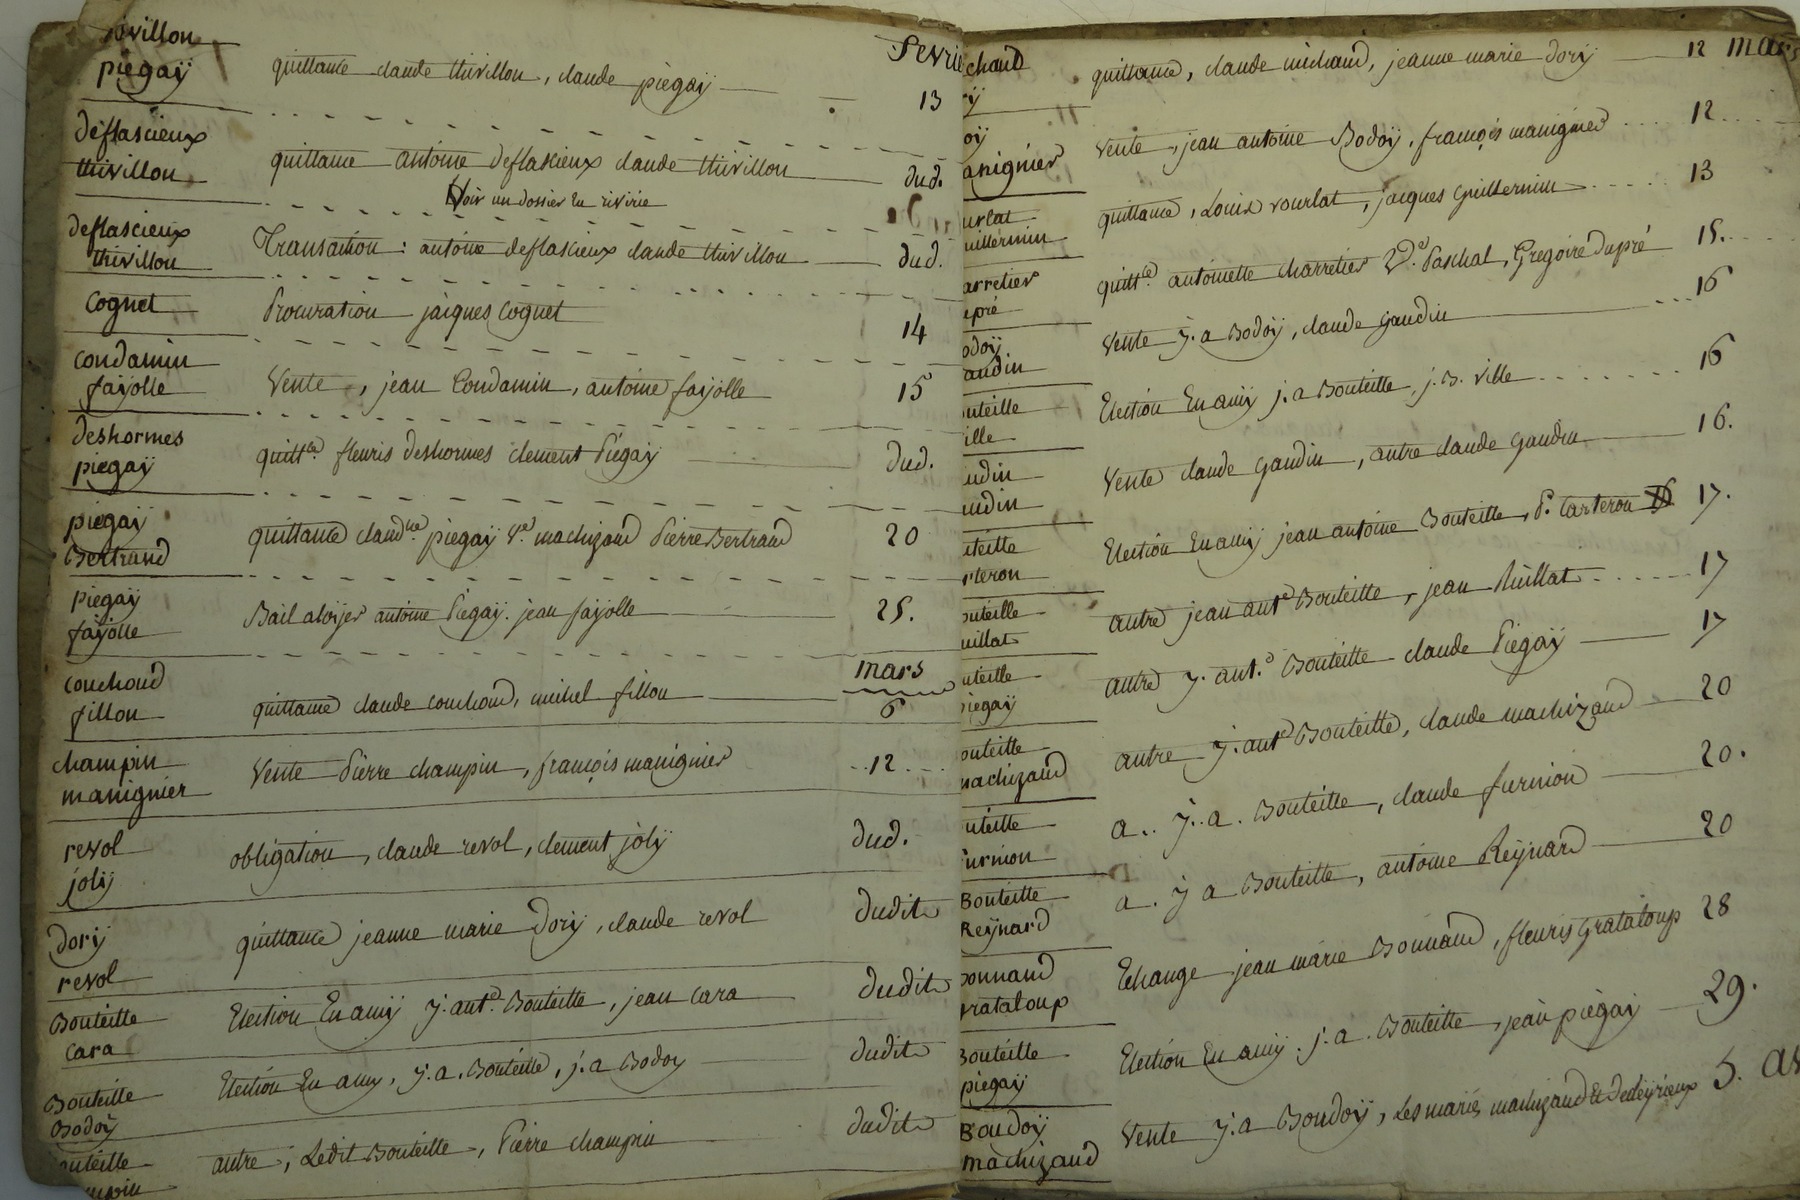 thivillon
piegaÿ
quittance claude thivillon, claude piègaÿ
fevrie
13
déflascieux
thivillon
quittance antoine deflascieux claude thivillon
dud.
Voir un dossier En rivirie
deflascieux
thivillon
Transation : antoine deflascieux claude thivillon
dud.
Cognet
Procuration jacques Cognet
14
Condamin
faÿolle
Vente, jean Condamin, antoine faÿolle
15
deshormes
piegaÿ
quittce. fleuris deshormes clement Piegaÿ
dud.
piegaÿ
Bertrand
quittance claudne. piegaÿ Ve. machizaud Pierre Bertrand
20
piegaÿ
faÿolle
Bail aloÿer antoine Piegaÿ. jean faÿolle
25.
mars
couchoud
fillon
quittance claude couchoud, michel fillon
6
champin
manignier
Vente Pierre champin, françois manignier
12
revol
jolÿ
obligation, claude revol, clement jolÿ
dud.
Dorÿ
revol
quittance jeanne marie Dorÿ, claude revol
dudit
Bouteille
Cara
Election En amÿ J. ant. Bouteille, jean Cara
dudit
Bouteille
Bodoÿ
Election En amy, J. a. Bouteille, j. a Bodoy
dudit
outeille
ampin
autre, Ledit Bouteille, Pierre champin
dudit
chaud
rÿ
quittance, claude michaud, jeanne marie dorÿ
12 mars
oÿ
anignier
Vente, jean antoine Bodoÿ, françois manignier
12
urlat
uillermin
quittance, Louis vourlat, jacques Guillermin
13
arretier
upré
quittce. antoinette charretier Ve. Paschal, Gregoire dupré
15.
odoÿ
audin
Vente J. a Bodoÿ, claude gaudin
16
outeille
ille
Election En amÿ j. a Bouteille, j. B. ville
16
udin
udin
Vente claude gaudin, autre claude gaudin
16.
uteille
rteron
Election En amÿ jean antoine Bouteille, P. Carteron
17.
outeille
uillat
autre jean ant Bouteille, jean
17
uteille
iegaÿ
autre J. ant. Bouteille claude Piegaÿ
17
outeille
machizaud
autre J. ant Bouteille, claude machizaud
20
uteille
furnion
a.. J. a. Bouteille, claude furnion
20.
Bouteille
Reÿnard
a. J a Bouteille, antoine Reÿnard
20
bonnand
rataloup
Echange jean marie Bonnand, fleuris grataloup
28
Bouteille
piegaÿ
Election En amÿ. j. a. Bouteille, jean piégaÿ
29.
Boudoÿ
machizaud
Vente J. a Boudoÿ, Les mariés machizaud Et
5. av